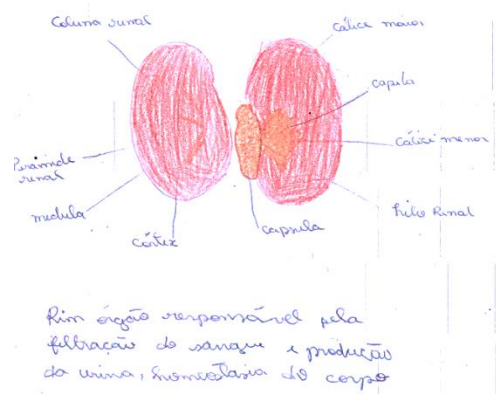 Coluna renal
Cálice maior
capula
Cálice menor
Pirâmide
renal
medula
hilo Rinal
córtex
capsula
Rim órgão responsável pela
filtração do sangue e produção
da urina, homeostasia do corpo